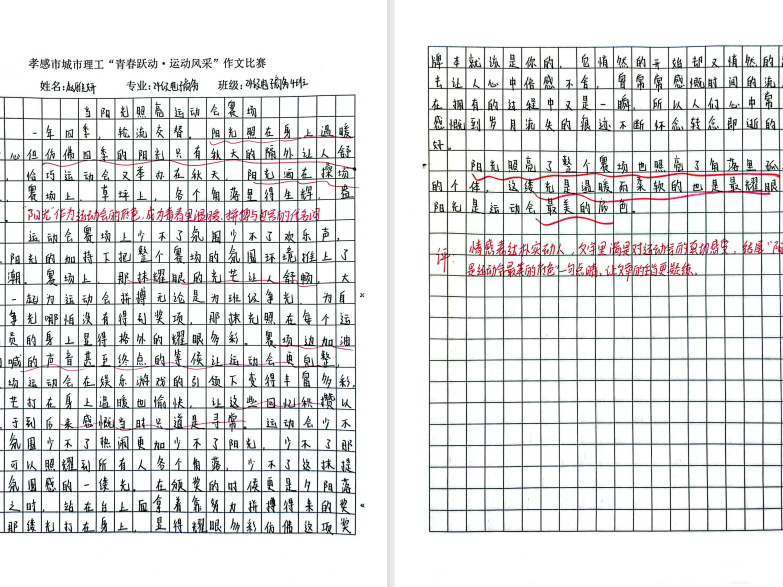 孝感市城市理工“青春跃动·运动风采”作文比赛
姓名: 专业: 班级:
当阳光照亮运动会赛场
一年四季，轮流交替。阳光照在身上温暖
心但仿佛四季的阳光只有秋天的隔外让人舒
恰巧运动会又举办在秋天，阳光洒在操场
赛场上，草坪上，各个角落显得生辉，
“阳光”作为运动会的底色，成为青春里温暖、拼搏与
运动会赛场上少不了氛围少不了欢乐声，
阳光的加持下把整个赛场的氛围环境推上了
潮。赛场上，那抹耀眼的光芒让人舒畅，大
一起为运动会拼搏无论是为班级争光，为自
争光哪怕没有得到奖项，那抹光照在每个运
员的身上显得格外的耀眼多彩。赛场边加油
喊的声音甚至终点的等候让运动会更完整，
场运动会在娱乐游戏的引领下变得丰富多彩，
芒打在身上温暖也愉快，让这些回忆积攒以
于到后来感慨当时只道是寻常。运动会少不
氛围少不了热闹更加少不了阳光，少不了那
可以照耀到所有人各个角落，少不了这抹提
氛围感的一缕光。在颁奖的时候更是夕阳落
之时，站在台上面拿着靠努力拼搏得来的奖
那缕光打在身上，显得耀眼多彩仿佛这项奖
牌本就该是你的，包悄然的开始却又悄然的
去让人心中倍感不舍，曾常常感慨时间的流
在拥有的过程中又是一瞬，所以人们心中常
感慨到岁月流失的痕迹不断怀念转念即逝的
好。
阳光照亮了整个赛场也照亮了角落里孤
的个体，这缕光是温暖而柔软的也是最耀眼
阳光是运动会最美的底色。
评：情感表达朴实动人，文字里满是对运动会的真切感受，结尾“阳
是运动会最美的底色”一句点睛，让文章的